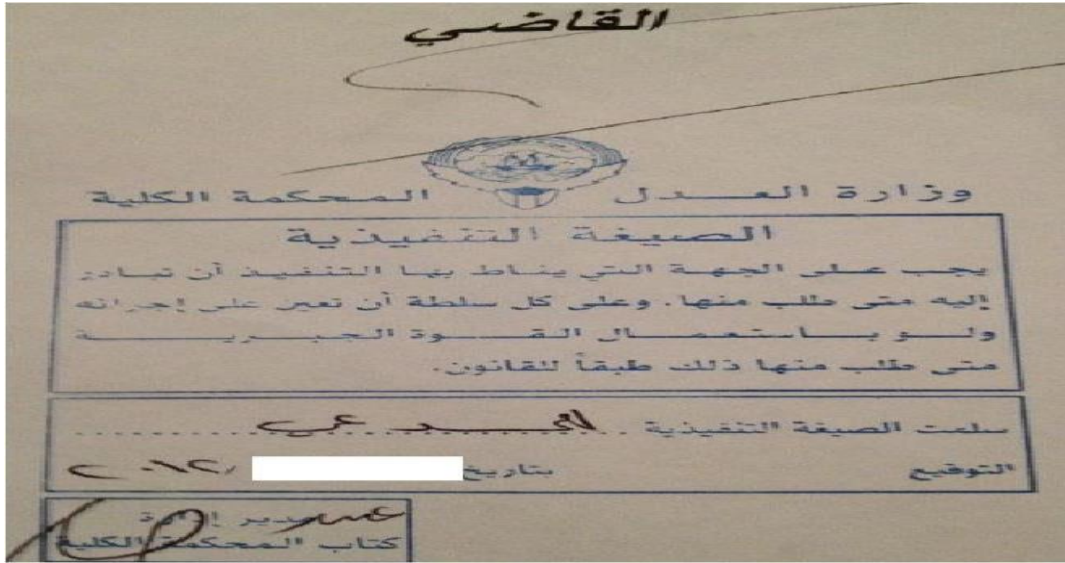 القاضي
وزارة العدل المحكمة الكلية
الصيغة التنفيذية
يجب على الجهة التي يناط بها التنفيذ أن تبادر
إليه متى طلب منها. وعلى كل سلطة أن تعين على إجرائه
ولو باستعمال القوة الجبرية
متى طلب منها ذلك طبقاً للقانون.
سلمت الصيغة التنفيذية
التوقيع بتاريخ ٢٠١٢/
مدير إدارة
كتاب المحكمة الكلية